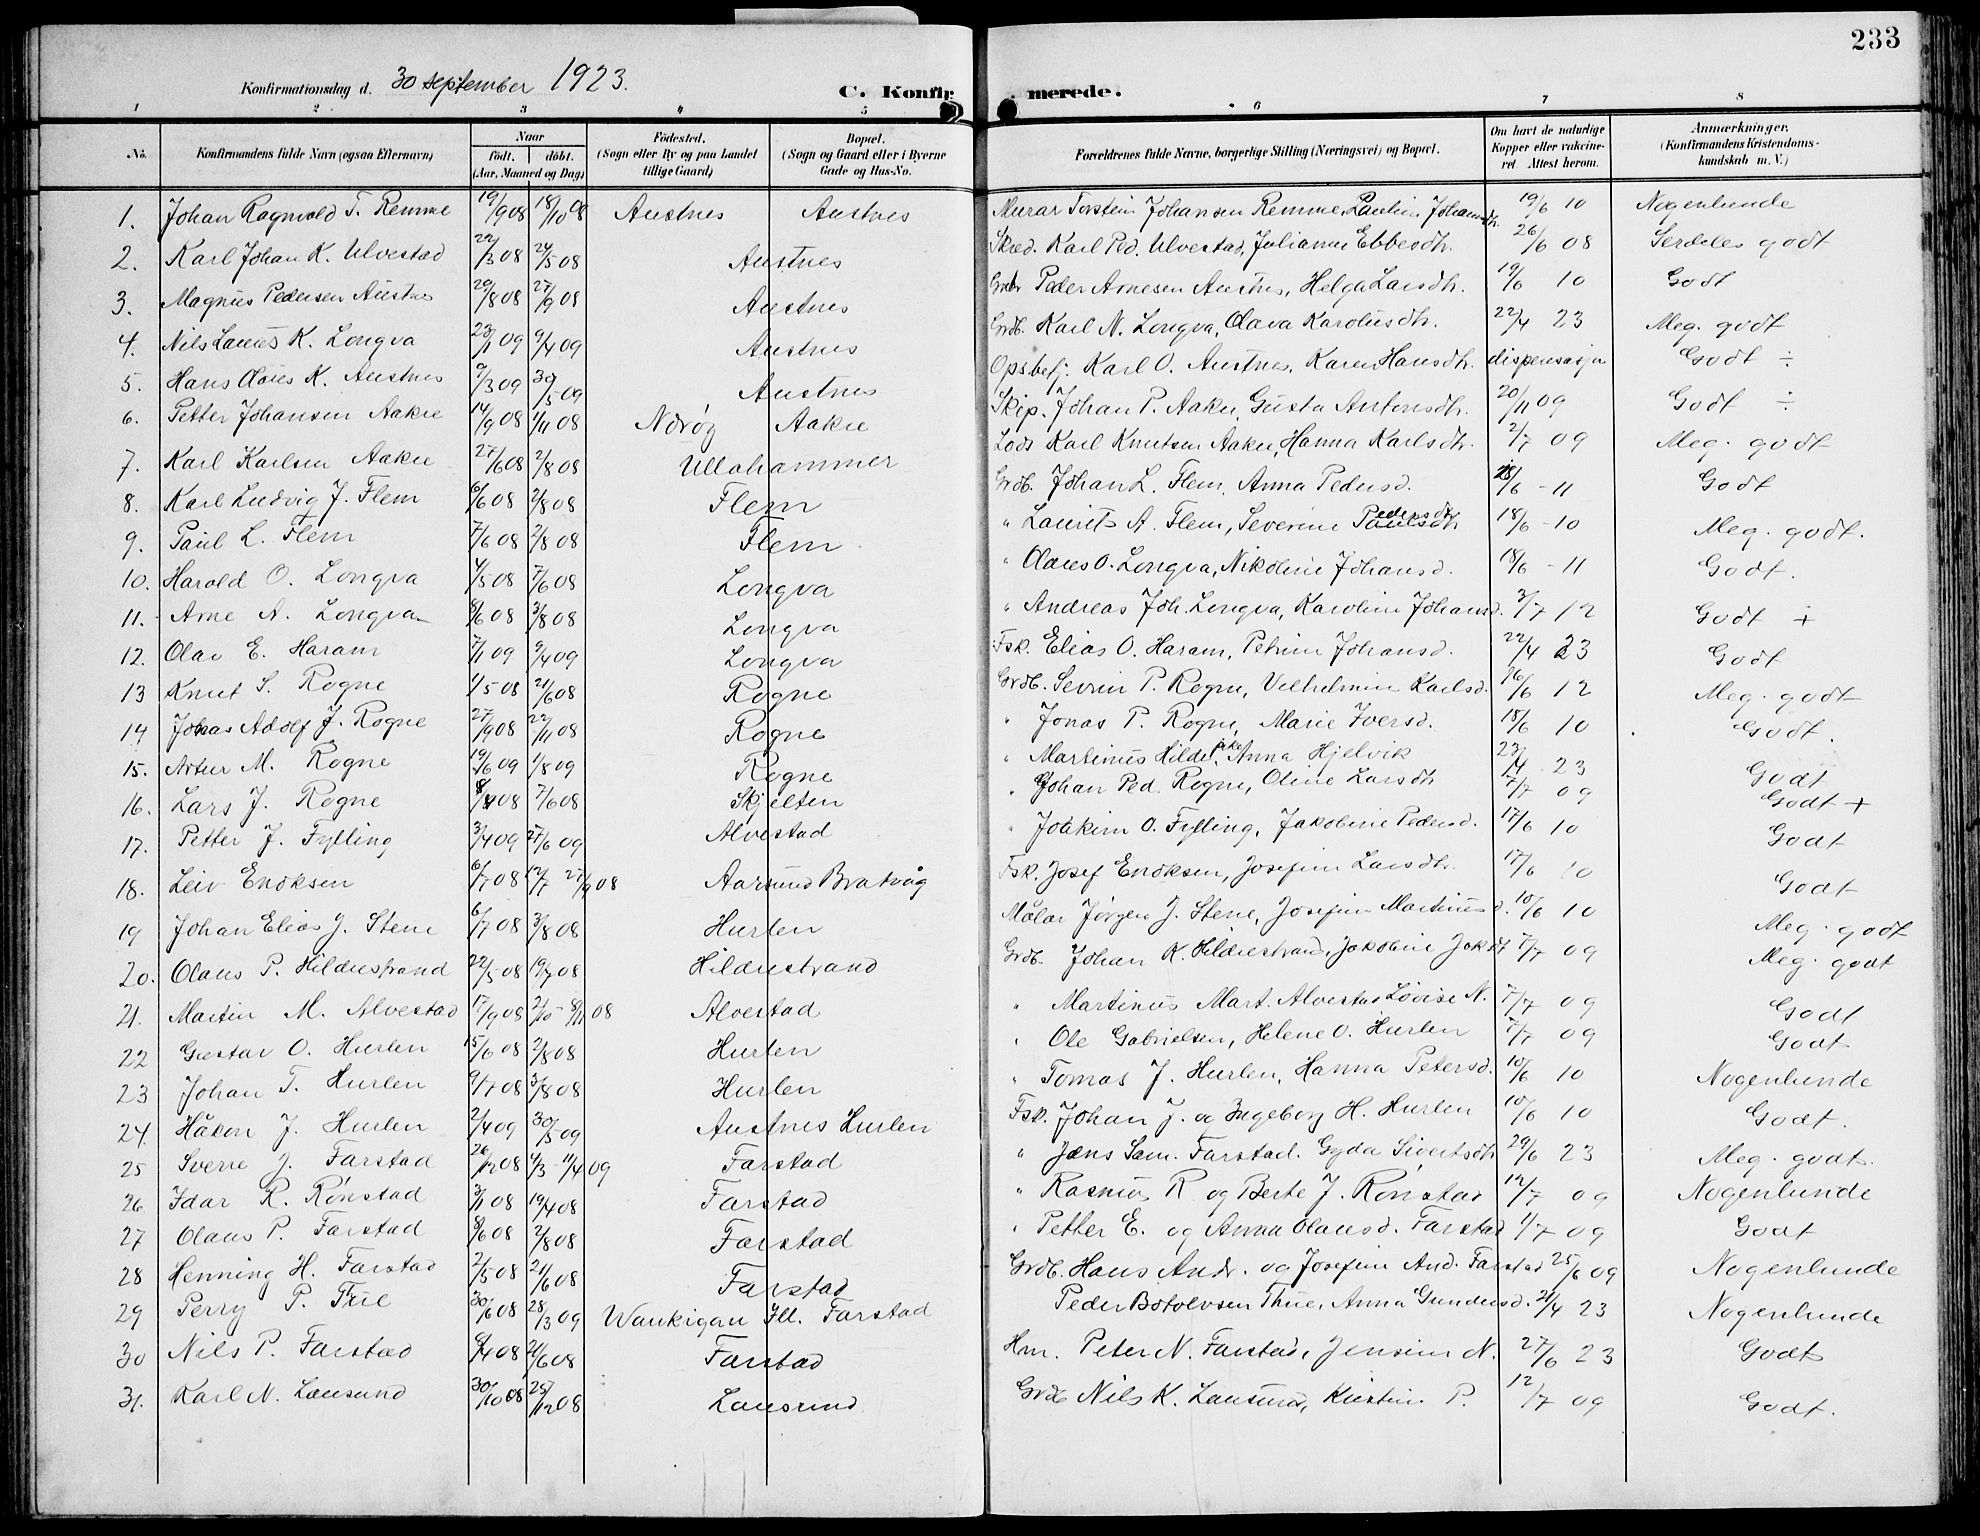 233
Konfirmationsdag d. 30 september 1923.
C. Konfirmerede.
1 2 3 4 5 6 7 8
No. Konfirmandens fulde Navn (ogsaa Efternavn) Naar födt. döbt. (Aar, Maaned og Dag) Födested. (Sogn eller By og paa Landet tillige Gaard) Bopæl. (Sogn og Gaard eller i Byerne Gade og Hus-No. Forældrenes fulde Navne, borgerlige Stilling (Næringsvei) og Bopæl. Om havt de naturlige Kopper eller vaccineret Attest herom. Anmærkninger. (Konfirmandens Kristendomskundskab m. V.)
1. Johan Ragnvald T. Remme 19/9 08 18/10 08 Austnes Austnes Murar Torstein Johansen Remme, Pauline Johansdtr. 19/6 10 Nogenlunde
2. Karl Johan K. Ulvestad 22/3 08 24/5 08 Austnes Skræd. Karl Ped. Ulvestad, Julianne Ebbesdtr. 26/6 08 Serdeles godt
3. Magnus Pedersen Austnes 29/8 08 27/9 08 Austnes Grdbr Peder Arnesen Austnes, Helga Larsdtr. 19/6 10 Godt
4. Nils Laurus K. Longva 23/1 09 9/4 09 Austnes Grdb. Karl N. Longva, Olava Karolusdtr. 22/4 23 Meg. godt
5. Hans Olaus K. Austnes 9/3 09 30/5 09 Austnes Opsbetj. Karl O. Austnes, Karen Hansdtr. dispensasjon Godt ÷
6. Petter Johansen Aakre 14/9 08 1/11 08 Nørøy Aakre Skip. Johan P. Aakre, Gusta Antonsdtr. 20/11 09 Godt ÷
7. Karl Karlsen Aakre 27/6 08 2/8 08 Ullahammer Lods Karl Knutsen Aakre, Hanna Karlsdtr. 2/7 09 Meg. godt
8. Karl Ludvig J. Flem 6/6 08 2/8 08 Flem Grdb. Johan L. Flem, Anna Pedersd. 18/6 - 11 Godt
9. Paul L. Flem 7/6 08 2/8 08 Flem " Laurits A. Flem, Severine Pedersdtr 18/6 - 10 Meg. godt.
10. Harald O. Longva 4/5 08 7/6 08 Longva " Olaus O. Longva, Nikoline Johansd. 18/6 - 11 Godt.
11. Arne A. Longva 8/6 08 3/8 08 Longva " Andreas Joh. Longva, Karoline Johansd. 3/7 12 Godt +
12. Olav E. Haram 7/1 09 9/4 09 Longva Fsk. Elias O. Haram, Petrine Johansd. 22/4 23 Godt
13 Knut S. Rogne 1/5 08 21/6 08 Rogne Grdb. Sevrin P. Rogne, Vilhelmine Karlsd. 16/6 12 Meg. godt
14 Johas Adolf J. Rogne 27/9 08 22/11 08 Rogne " Jonas P. Rogne, Marie Iversd. 18/6 10 Godt.
15. Artur M. Rogne 19/6 09 1/8 09 Rogne " Martinus Hilde, pike Anna Hjelvik 23/4 23 Godt
16. Lars J. Rogne 8/4 08 7/6 08 Skjelten " Johan Ped. Rogne, Oline Larsdtr 7/7 09 Godt +
17. Petter J. Fylling 3/4 09 27/6 09 Alvestad " Joakim O. Fylling, Jakobine Pedersd. 17/6 10 Godt
18. Leiv Enoksen 6/7 08 12/7 27/9 08 Aarsund Bratvåg Fsk. Josef Enoksen, Josefine Larsdtr. 17/6 10 Godt
19 Johan Elias J. Stene 6/7 08 3/8 08 Hurlen Målar Jørgen J. Stene, Josefine Martinusd. 10/6 10 Meg. godt
20. Olaus P. Hildrestrand 22/5 08 19/7 08 Hildrestrand Grdb. Johan K. Hildrestrand, Jakobine Jak.dt 7/7 09 Meg. godt
21. Martin M. Alvestad 17/9 08 2/10 - 8/11 08 Alvestad " Martinus Mart. Alvestad Lovise N. 7/7 09 Godt
22 Gustav O. Hurlen 15/6 08 2/8 08 Hurlen " Ole Gabrielsen, Helene O. Hurlen 7/7 09 Godt
23 Johan T. Hurlen 9/7 08 3/8 08 Hurlen " Tomas J. Hurlen, Hanna Petersd. 10/6 10 Nogenlunde
24 Håkon J. Hurlen 2/4 09 30/5 09 Austnes Hurlen Fsk. Johan J. og Ingeborg H. Hurlen 10/6 10 Godt.
25 Sverre J. Farstad 26/12 08 1/3 - 11/4 09 Farstad " Jens Sam. Farstad. Gyda Sivertsdtr 29/6 23 Meg. godt.
26 Idar R. Rønstad 3/1 08 19/4 08 Farstad " Rasmus R og Berte J. Rønstad 12/7 09 Nogenlunde
27 Olaus P. Farstad 8/6 08 2/8 08 Farstad " Petter E. og Anna Olausd. Farstad 1/7 09 Godt
28 Henning H. Farstad 2/5 08 21/6 08 Farstad Grdb. Hans Andr. og Josefine And. Farstad 25/6 09 Nogenlunde
29 Perry P. Tue 30/6 08 28/3 09 Waukigan Ill. Farstad Peder Botolvsen Thue, Anna Gundersd. 21/4 23 Nogenlunde
30 Nils P. Farstad 6/4 08 20/6 08 Farstad Hm. Peter N. Farstad, Jensine N. 27/6 23 Godt
31. Karl N. Lausund 30/10 08 25/12 08 Lausund Grdb Nils K. Lausund, Kirstine P. 12/7 09 Godt.